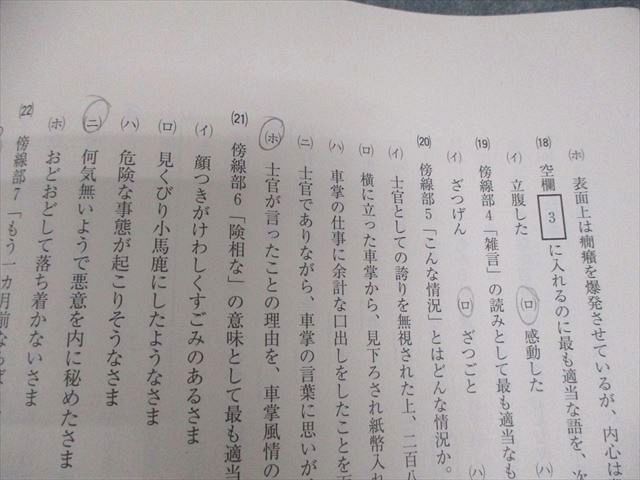 ㋭ 表面上は癇癪を爆発させているが、内心は
⒅ 空欄 3 に入れるのに最も適当な語を、次
㋑ 立腹した ㋺ 感動した ㋩
⒆ 傍線部4「雑言」の読みとして最も適当なも
㋑ ざつげん ㋺ ざつごと ㋩
⒇ 傍線部5「こんな情況」とはどんな情況か。
㋑ 士官としての誇りを無視された上、二百八
㋺ 横に立った車掌から、見下ろされ紙幣入れ
㋩ 車掌の仕事に余計な口出しをしたことを
㋥ 士官でありながら、車掌の言葉に思いが
㋭ 士官が言ったことの理由を、車掌風情の
(21) 傍線部6「険相な」の意味として最も適当
㋑ 顔つきがけわしくすごみのあるさま
㋺ 見くびり小馬鹿にしたようなさま
㋩ 危険な事態が起こりそうなさま
㋥ 何気無いようで悪意を内に秘めたさま
㋭ おどおどして落ち着かないさま
(22) 傍線部7「もう一カ月前ならば